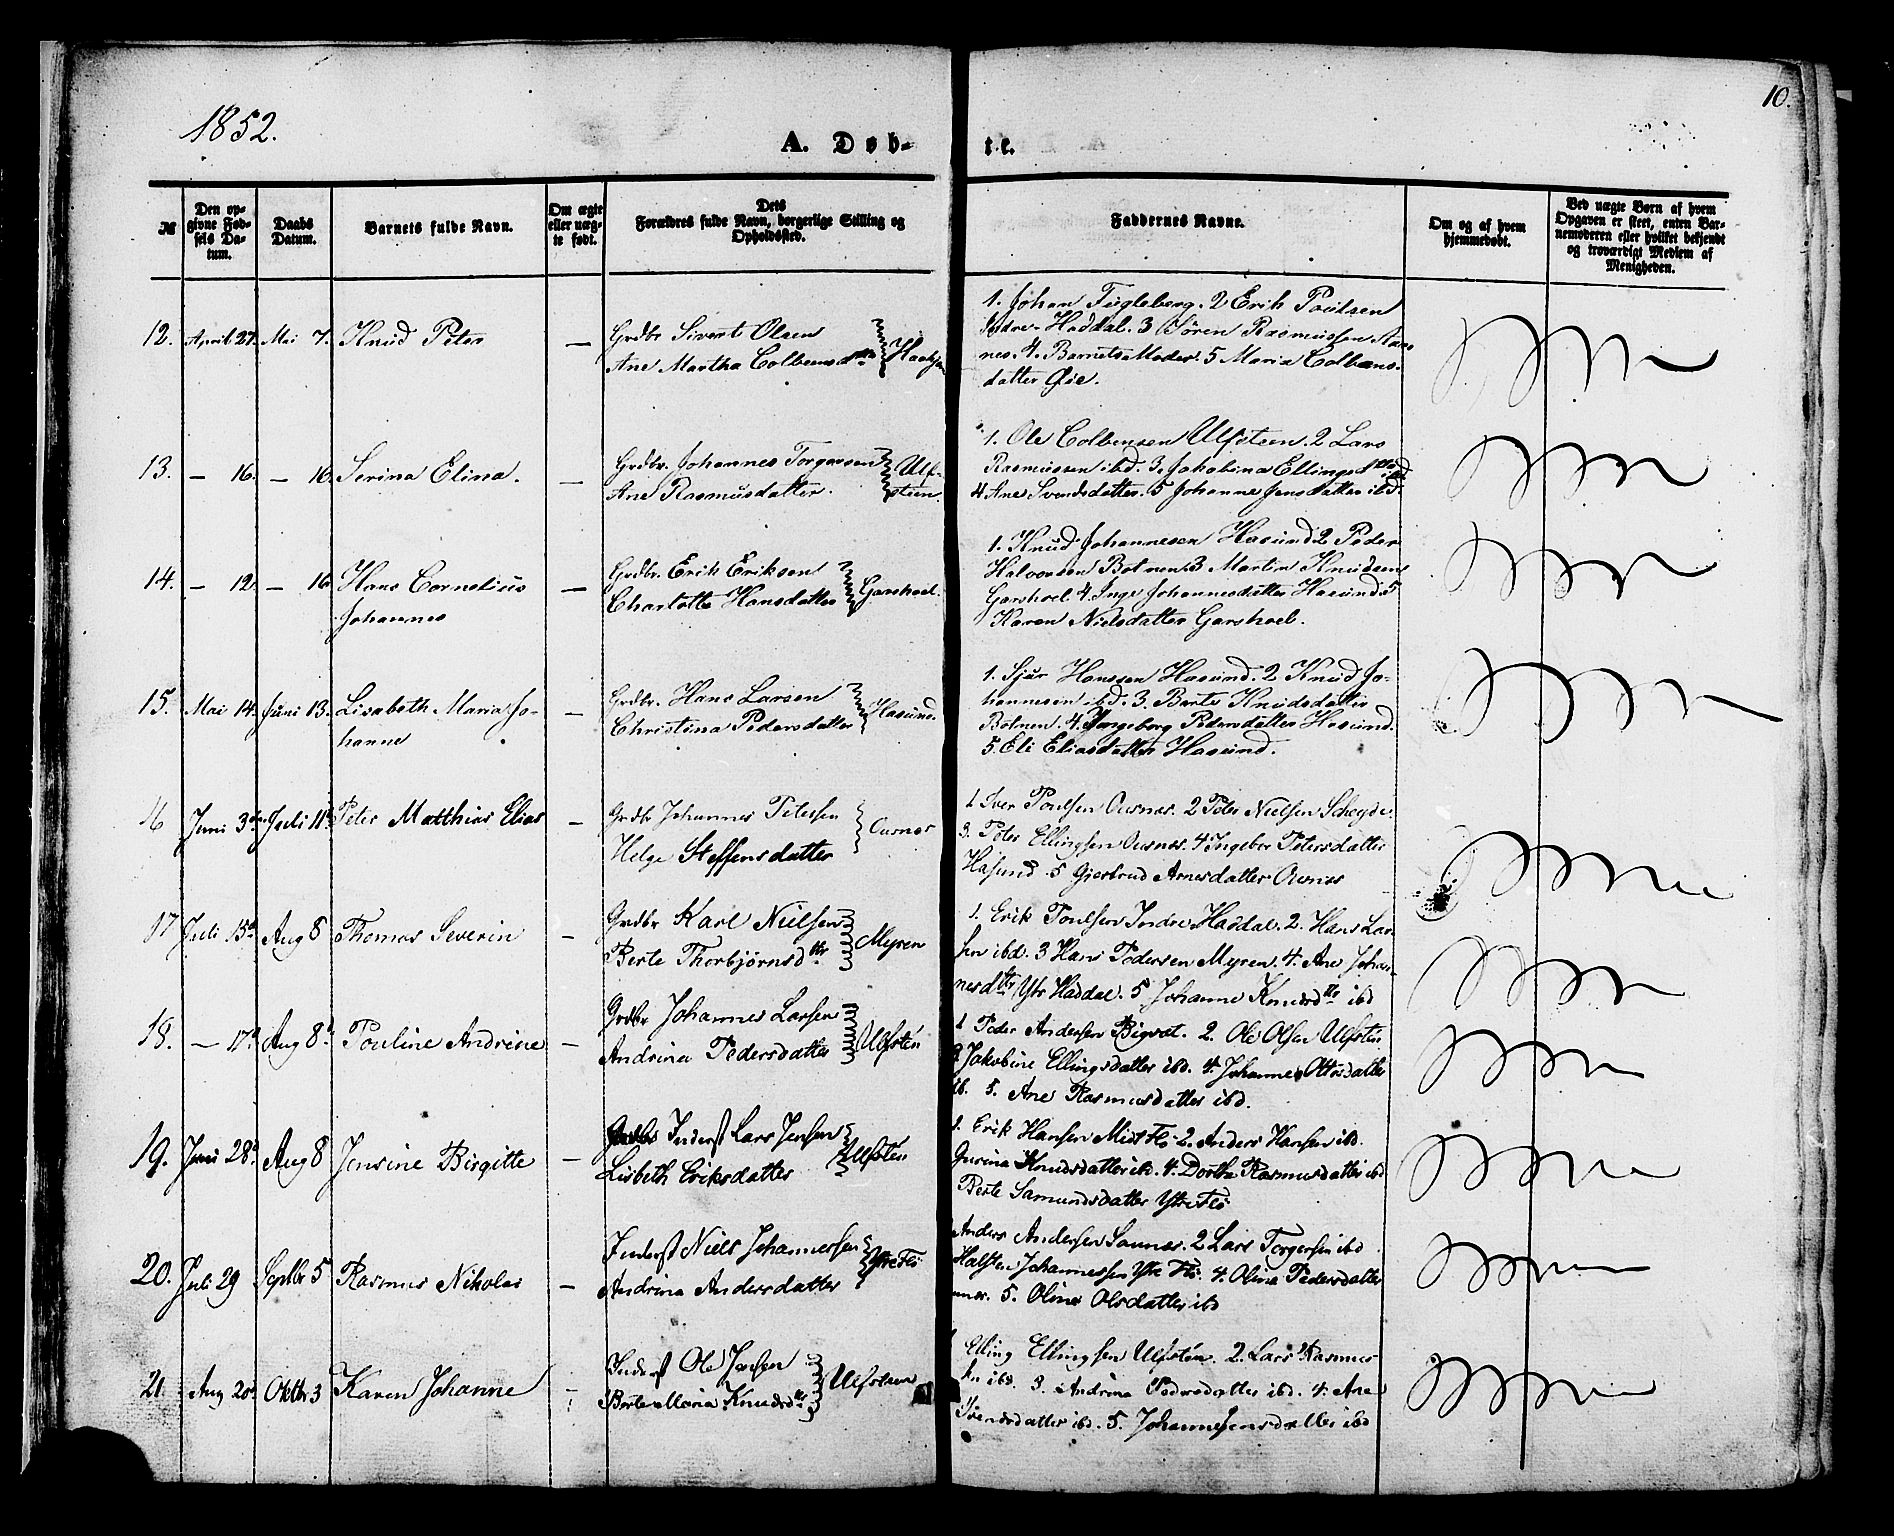 1852.
10.
A. Døb-
te.
№
Den op-
givne Fød-
sels Da-
tum.
Daabs
Datum.
Barnets fulde Navn.
Om ægte
eller uæg-
te født.
Dets
Forældres fulde Navn, borgerlige Stilling og
Opholdssted.
Faddernes Navne.
Om og af hvem
hjemmedøbt.
Ved uægte Børn af hvem
Opgaven er skeet, enten Bar-
nemoderen eller hvilket bekjendt
og troværdigt Medlem af
Menigheden.
12. April 27. Mai 7. Knud Peter —
Grdbr Sivert Olsen
Ane Martha Colbensdttr
1. Johan Fugleberg. 2 Erik Poulsen
Indre-Haddal. 3 Søren Rasmussen Aas-
nes. 4. Barnets Moder. 5 Maria Colbens-
datter Øie.
13. — 16. — 16. Serina Elina. —
Grdbr. Johannes Torgersen Ulf-
Ane Rasmusdatter. steen.
1. Ole Colbensen Ulfsteen. 2 Lars
Rasmussen ibd. 3. Jakobina Ellingsdttr ibd
4 Ane Svendsdatter. 5 Johanne Jensdatter ibd.
14. — 12. — 16. Hans Cornelius —
Johannes
Grdbr. Erik Eriksen
Charlotte Hansdatter Garshoel.
1. Knud Johannesen Hasund 2 Peder
Halvorsen Botnen. 3 Martin Knudsen
Garshoel. 4. Inge Johannesdatter Hasund. 5
Karen Nielsdatter Garshoel.
15. Mai 14. Juni 13. Lisabeth Maria Jo- —
hanne
Grdbr. Hans Larsen
Christina Pedersdatter Hasund.
1. Sjur Hanssen Hasund. 2 Knud Jo-
hannesen ibd. 3. Berte Knudsdatter
Botnen. 4. Ingeborg Pedersdatter Hasund.
5. Eli Eliasdatter Hasund.
16 Juni 3 Juli 11 Peter Matthias Elias —
Grdbr Johannes Petersen
Helge Steffensdatter Ousnes
1 Iver Poulsen Ousnes. 2 Peter Nielsen
3. Peter Ellingsen Ousnes. 4 Ingebor Petersdatter
Hasund. 5 Giertrud Arnesdatter Ousnes
17 Juli 15d Aug 8 Thomas Severin —
Grdbr Karl Nielsen
Berte Thorbjørnsdttr Myren
1. Erik Poulsen Indre Haddal. 2. Hans Lar-
sen ibd. 3 Hans Pedersen Myren. 4. Ane Johan-
nesdttr Ytr Haddal. 5 Johanne Knudsdttr ibd
18. — 17d Aug 8d Pouline Andrine —
Grdbr Johannes Larsen
Andrina Pedersdatter Ulfsten
1 Peder Andersen Bigset. 2. Ole Olsen Ulfsten
3 Jakobine Ellingsdatter ibd. 4. Johanne Ottosdatter
ib. 5. Ane Rasmusdatter ibd.
19. Juni 28d Aug 8 Jensine Birgitte —
Inderst Lars Jensen
Lisbeth Eriksdatter Ulfsten
1. Erik Hansen Midt Flö 2. Anders Hansen ibd.
Gurina Knudsdatter ib. 4. Dorthe Rasmusdatter ibd
Berte Samundsdatter Ytre Flö
20. Juli 29 Septbr 5 Rasmus Nikolai —
Inderst Niels Johannessen
Andrina Andersdatter Ytre Flö
Anders Andersen Saunes. 2 Lars Torgersen ibd
Halsten Johannessen Ytre Flö. 4. Olina Pedersdatter
5. Oline Olsdatter ibd
21. Aug 20d Oktbr 3 Karen Johanne —
Inderst Ole Jensen
Berte Maria Knudsdttr Ulfsteen
Elling Ellingsen Ulfsten. 2. Lars Rasmus-
sen ibd. 3. Andrina Pedersdatter ibd. 4. Ane
Svendsdatter ibd. 5. Johanne Jensdatter ibd